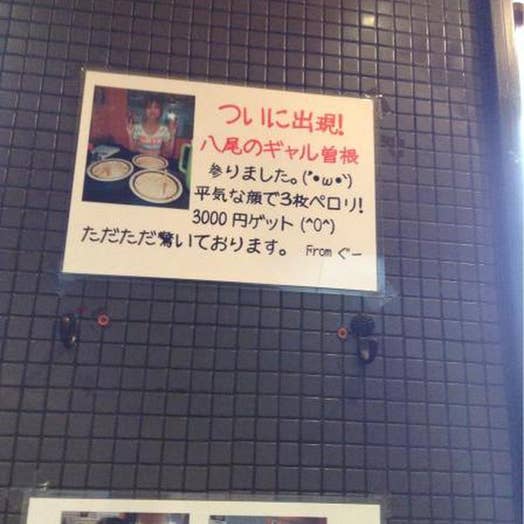 ついに出現!
八尾のギャル曽根
参りました。(´•ω•`)
平気な顔で3枚ペロリ!
3000円ゲット (^0^)
ただただ驚いております。 Fromぐー